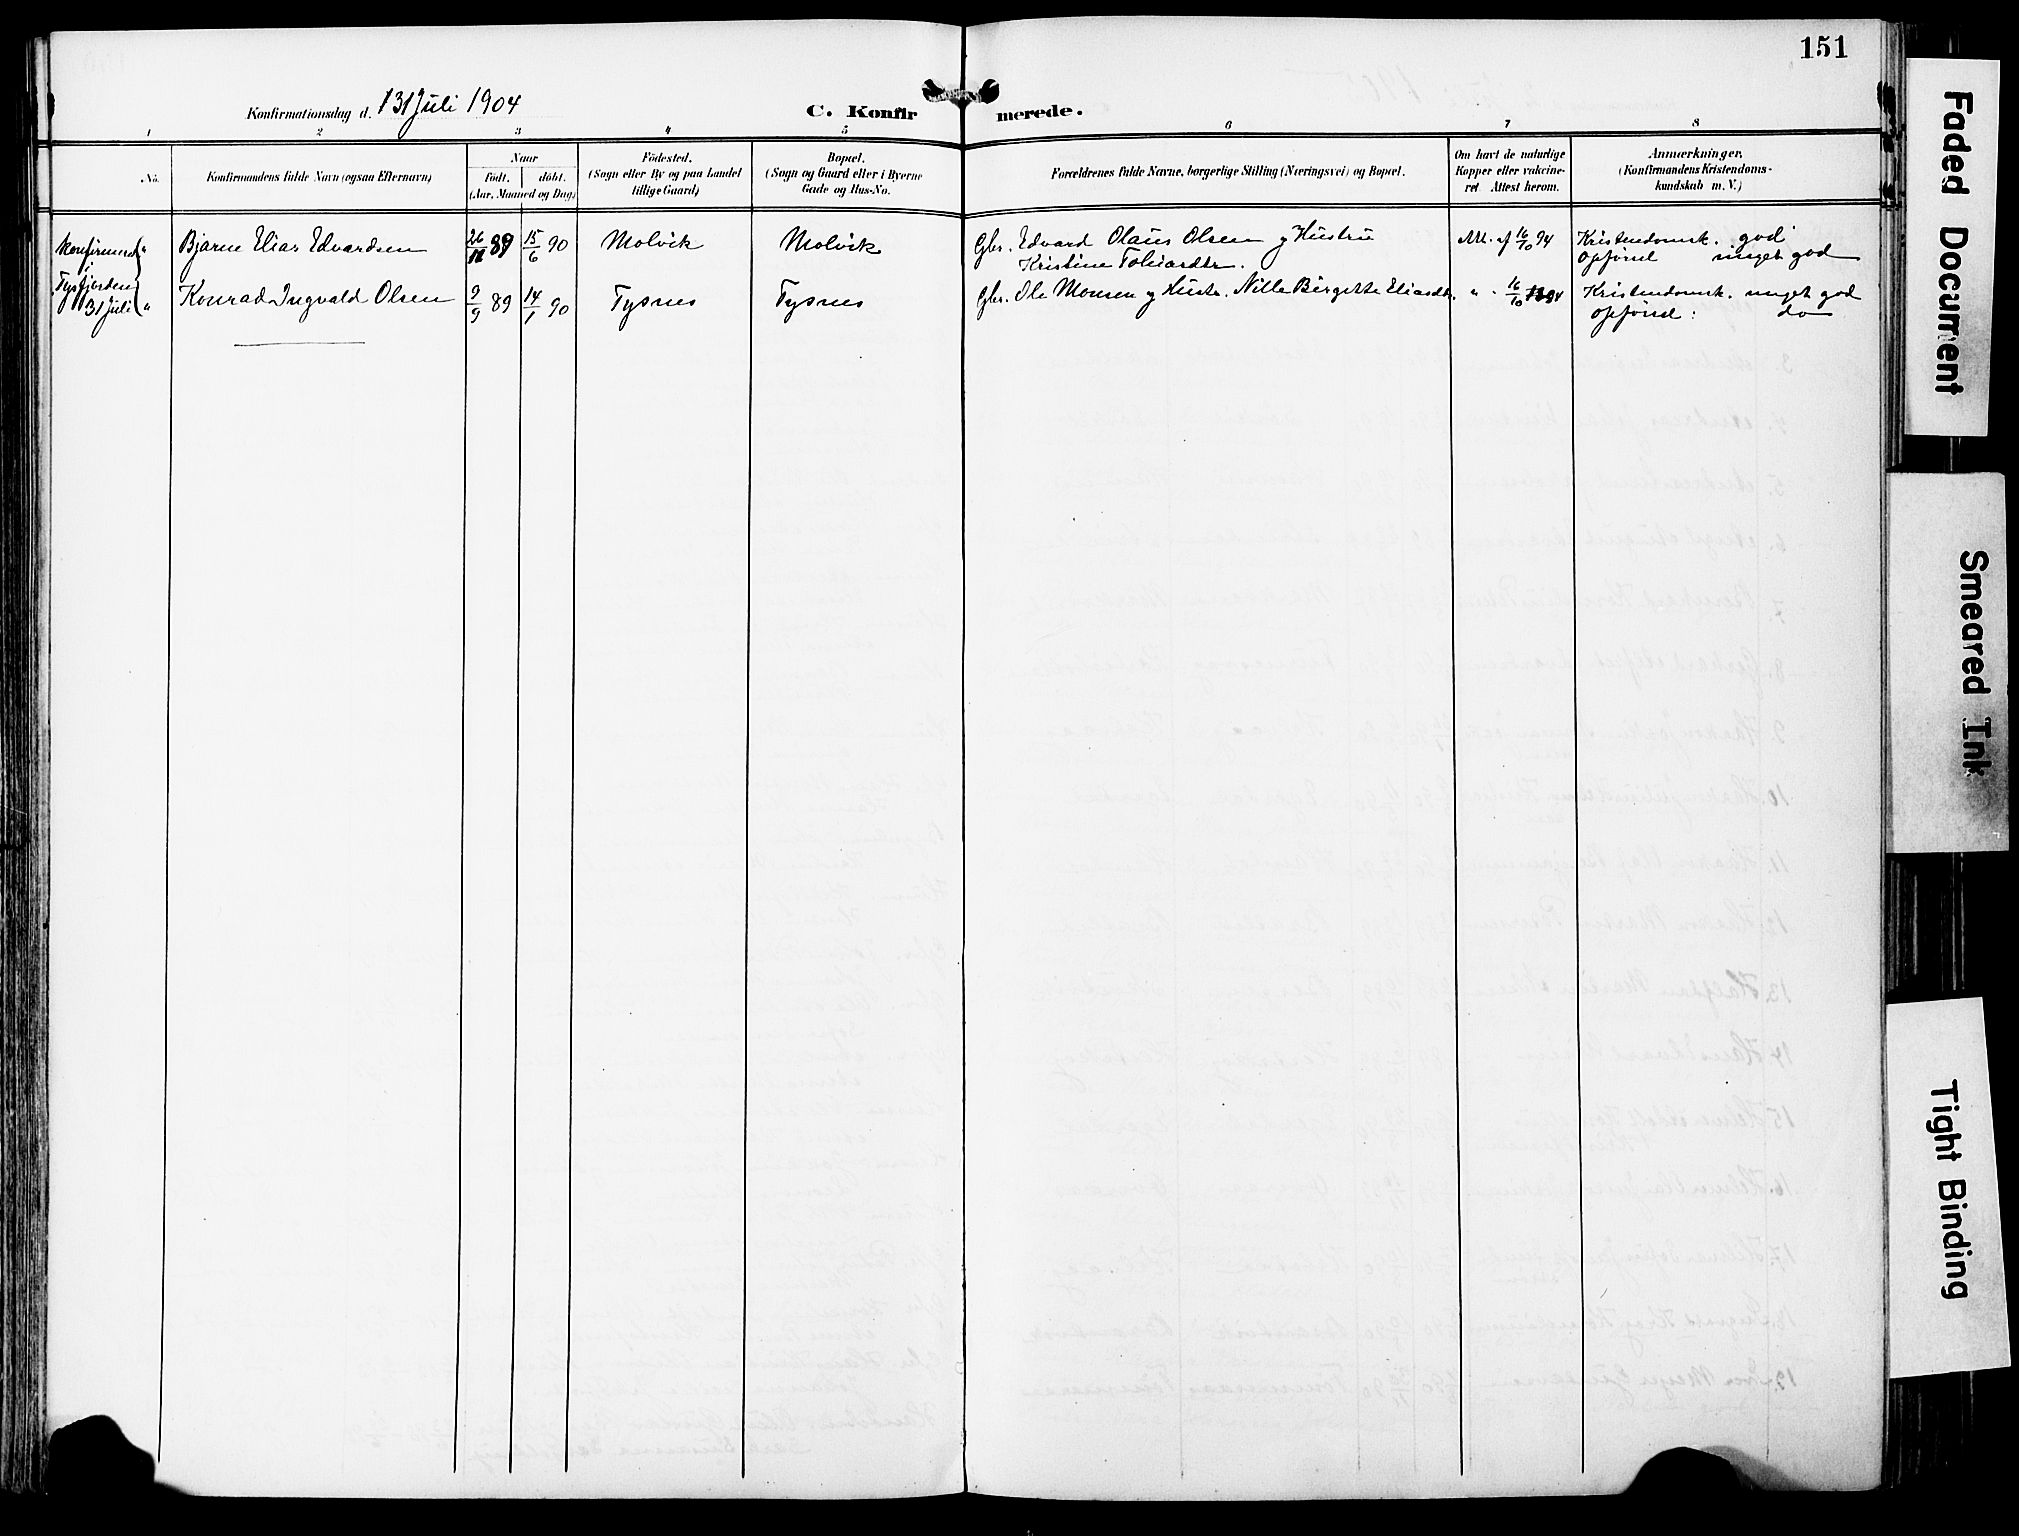 151
Konfirmationsdag d. 31 Juli 1904
C. Konfirmerede.
1 2 3 4 5 6 7 8
No.
Konfirmandens fulde Navn (ogsaa Efternavn)
Naar
födt. döbt.
(Aar, Maaned og Dag)
Födested.
(Sogn eller By og paa Landet
tillige Gaard)
Bopæl.
(Sogn og Gaard eller i Byerne
Gade og Hus-No.
Forældrenes fulde Navne, borgerlige Stilling (Næringsvei) og Bopæl.
Om havt de naturlige
Kopper eller vakcine-
ret. Attest herom.
Anmærkninger.
(Konfirmandens Kristendoms-
kundskab m. V.)
Konfirmed
i
Tysfjorden
31 Juli
" Bjarne Elias Edvardsen 26/11 89 15/6 90 Molvik Molvik Gbr. Edvard Olaus Olsen og Hustru
Kristine
Att. af 16/10 94 Kristendomsk. god
Opførsel meget god
" Konrad Ingvald Olsen 9/9 89 14/1 90 Tysnes Tysnes Gbr. Ole Monsen og Hustr. Nille Birgitte Eliasdtr. " " 16/10 94 Kristendomsk. meget god
Opførsel: do
Faded Document
Smeared Ink
Tight Binding